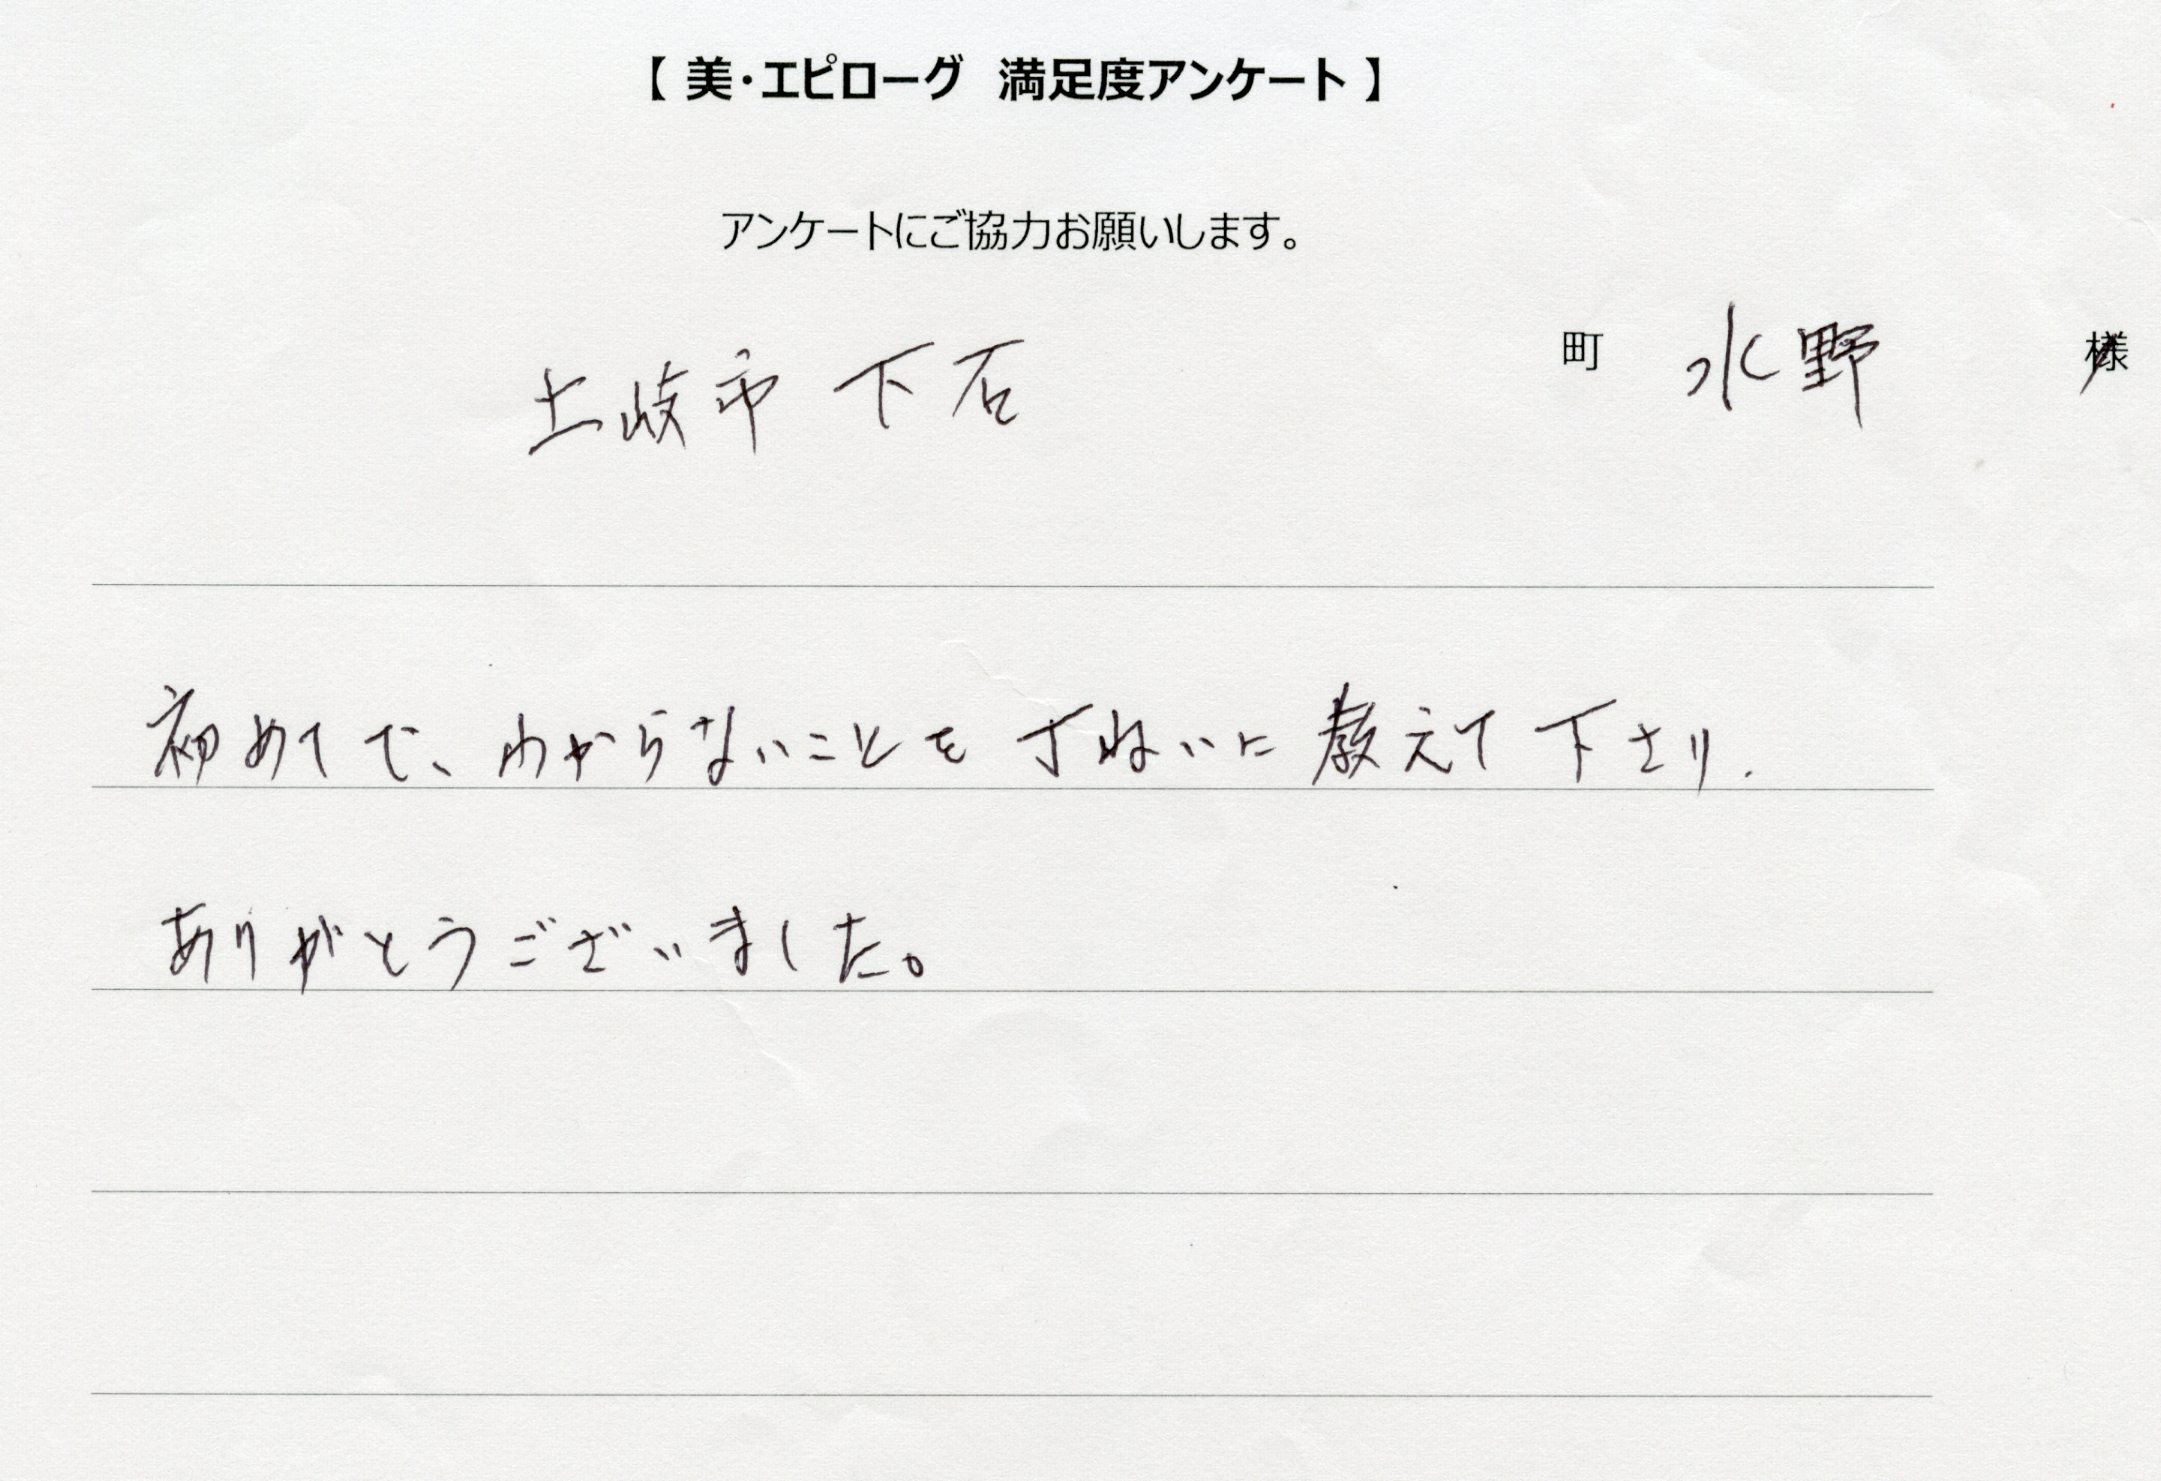 【 美・エピローグ 満足度アンケート 】
アンケートにご協力お願いします。
土岐市 下石 町 水野 様
初めてで、わからないことを丁ねいに教えて下さり.
ありがとうございました。